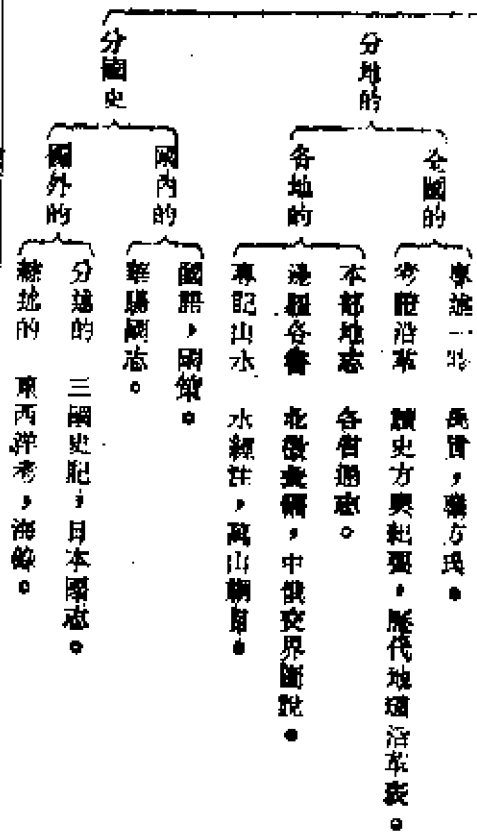 分地的
全國的
專述一時 禹貢，職方氏。
考證沿革 讀史方輿紀要，歷代地理沿革表。
各地的
本部地志 各省通志。
邊疆各書 北徼彙編，中俄交界圖說。
專記山水 水經注，萬山綱目。
分國史
國內的
國語，國策。
華陽國志。
國外的
分地的 三國史記，日本國志。
總地的 東西洋考，海錄。